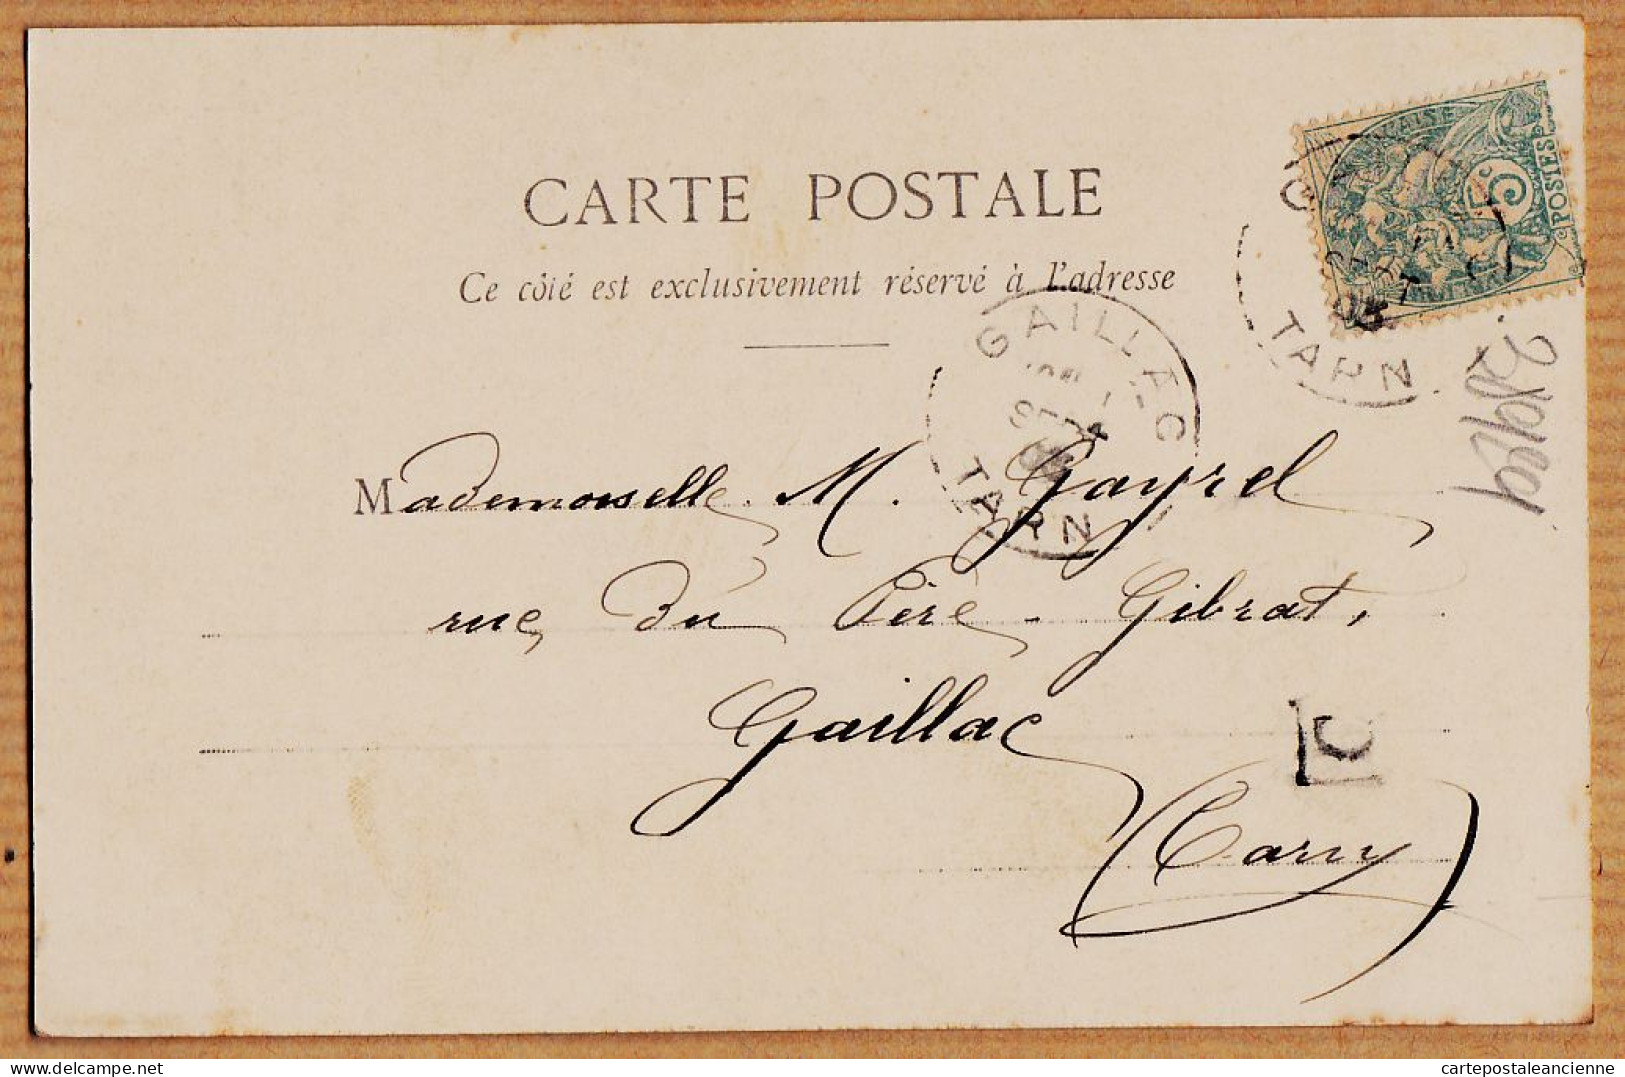 CARTE POSTALE
Ce côté est exclusivement réservé à l'adresse
FRANÇAISE
5c
POSTES
TARN
GAILLAC
TARN
Mademoiselle M. Gayrel
rue du Père Gibrat,
Gaillac
(Tarn)
delcampe.net
cartepostaleancienne